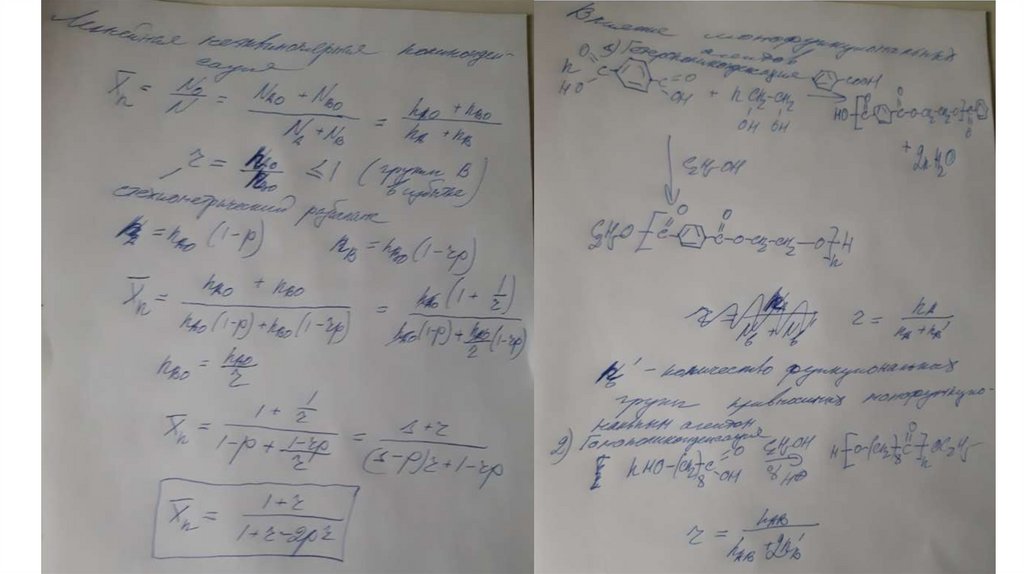 Линейная неэквимолярная поликонден-
сация
X̄n = N0/N = (NA0 + NB0)/(NA + NB) = (nA0 + nB0)/(nA + nB)
r = nA0/nB0 ≤ 1 (группы B в избытке)
стехиометрический разбаланс
nA = nA0 (1-p) nB = nB0 (1-rp)
X̄n = (nA0 + nB0)/(nA0(1-p)+nB0(1-rp)) = nA0(1 + 1/r)/(nA0(1-p)+nA0/r(1-rp))
nB0 = nA0/r
X̄n = (1 + 1/r)/(1-p+(1-rp)/r) = (1+r)/((1-p)r+1-rp)
X̄n = (1+r)/(1+r-2pr)
Влияние монофункциональных
агентов
1) Гетерополиконденсация
n HO C O C O OH + n CH2-CH2 OH OH COOH HO[C O C O O-CH2-CH2-O]C O
+ 2n H2O
C2H5OH
C2H5O [C O C O -O-CH2-CH2-O]n H
r = nA/(nA+nB')
nB' - количество функциональных
групп привносимых монофункцио-
нальным агентом
2) Гомополиконденсация
n HO-(CH2)8 C O OH C2H5OH H[O-(CH2)8 C O]n OC2H5
r = nAB/(nAB+2nB')